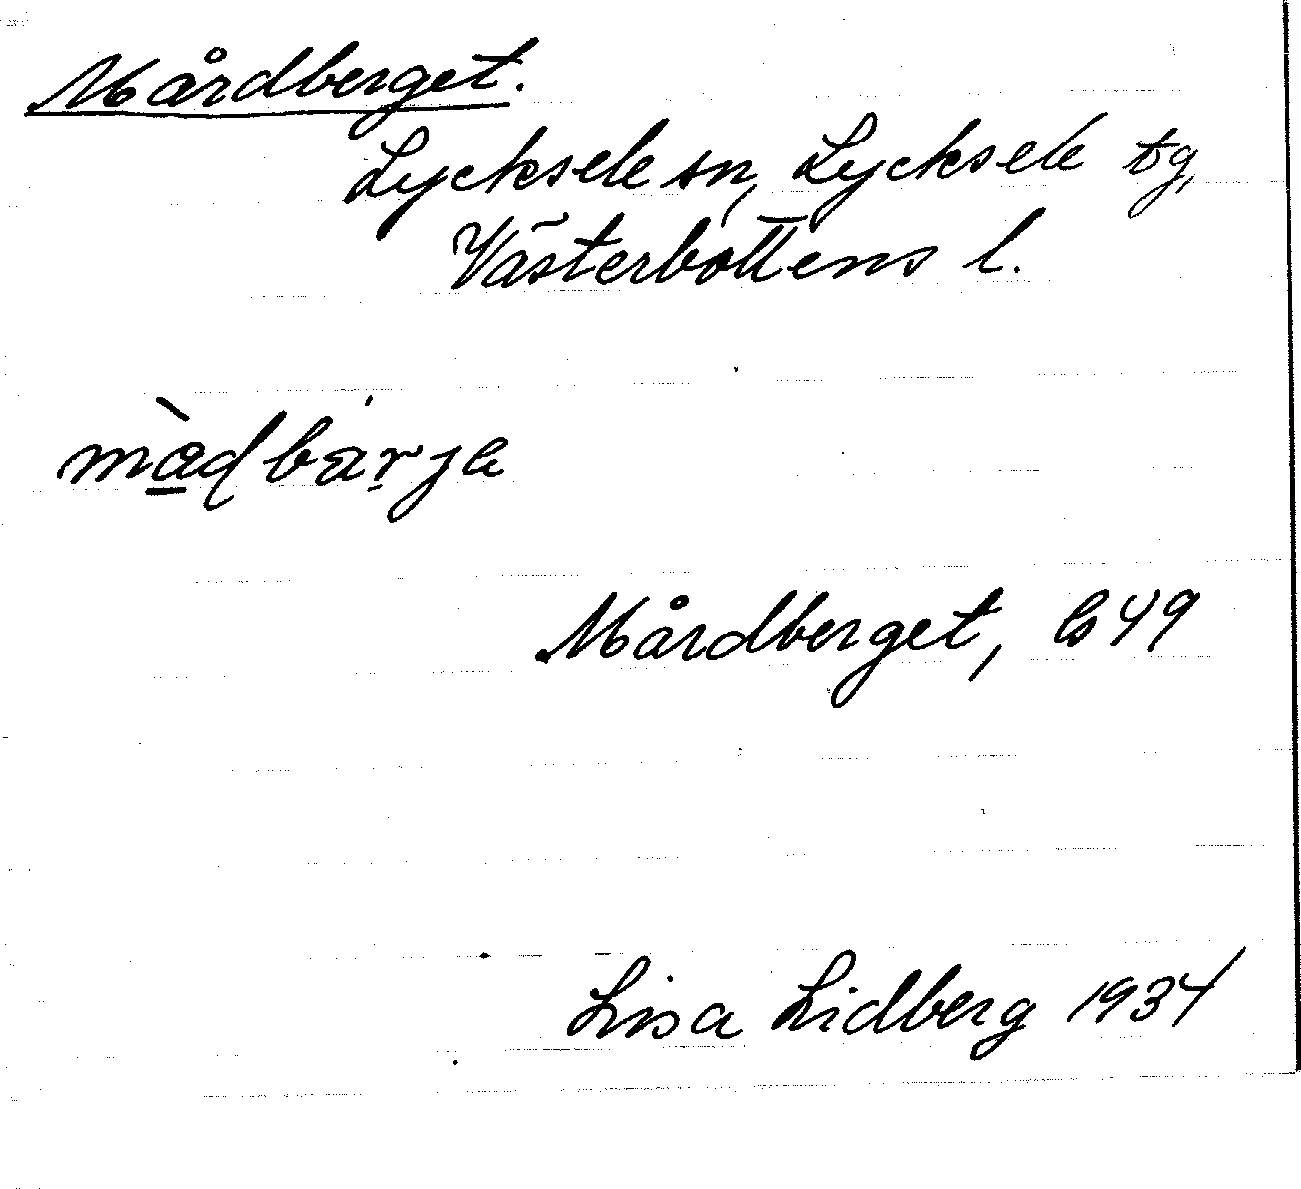 Mårdberget.
Lycksele sn, Lycksele tg,
Västerbottens l.
Mårdberget, b 49
Lisa Lidberg 1934